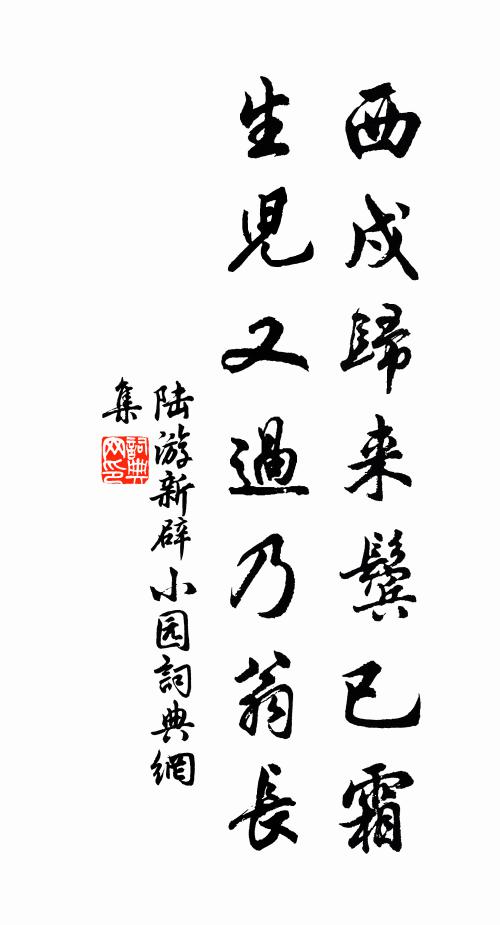 西戍歸来鬓已霜
生児又過乃翁長
陆游新辟小园詞典網
集
詞典
网印